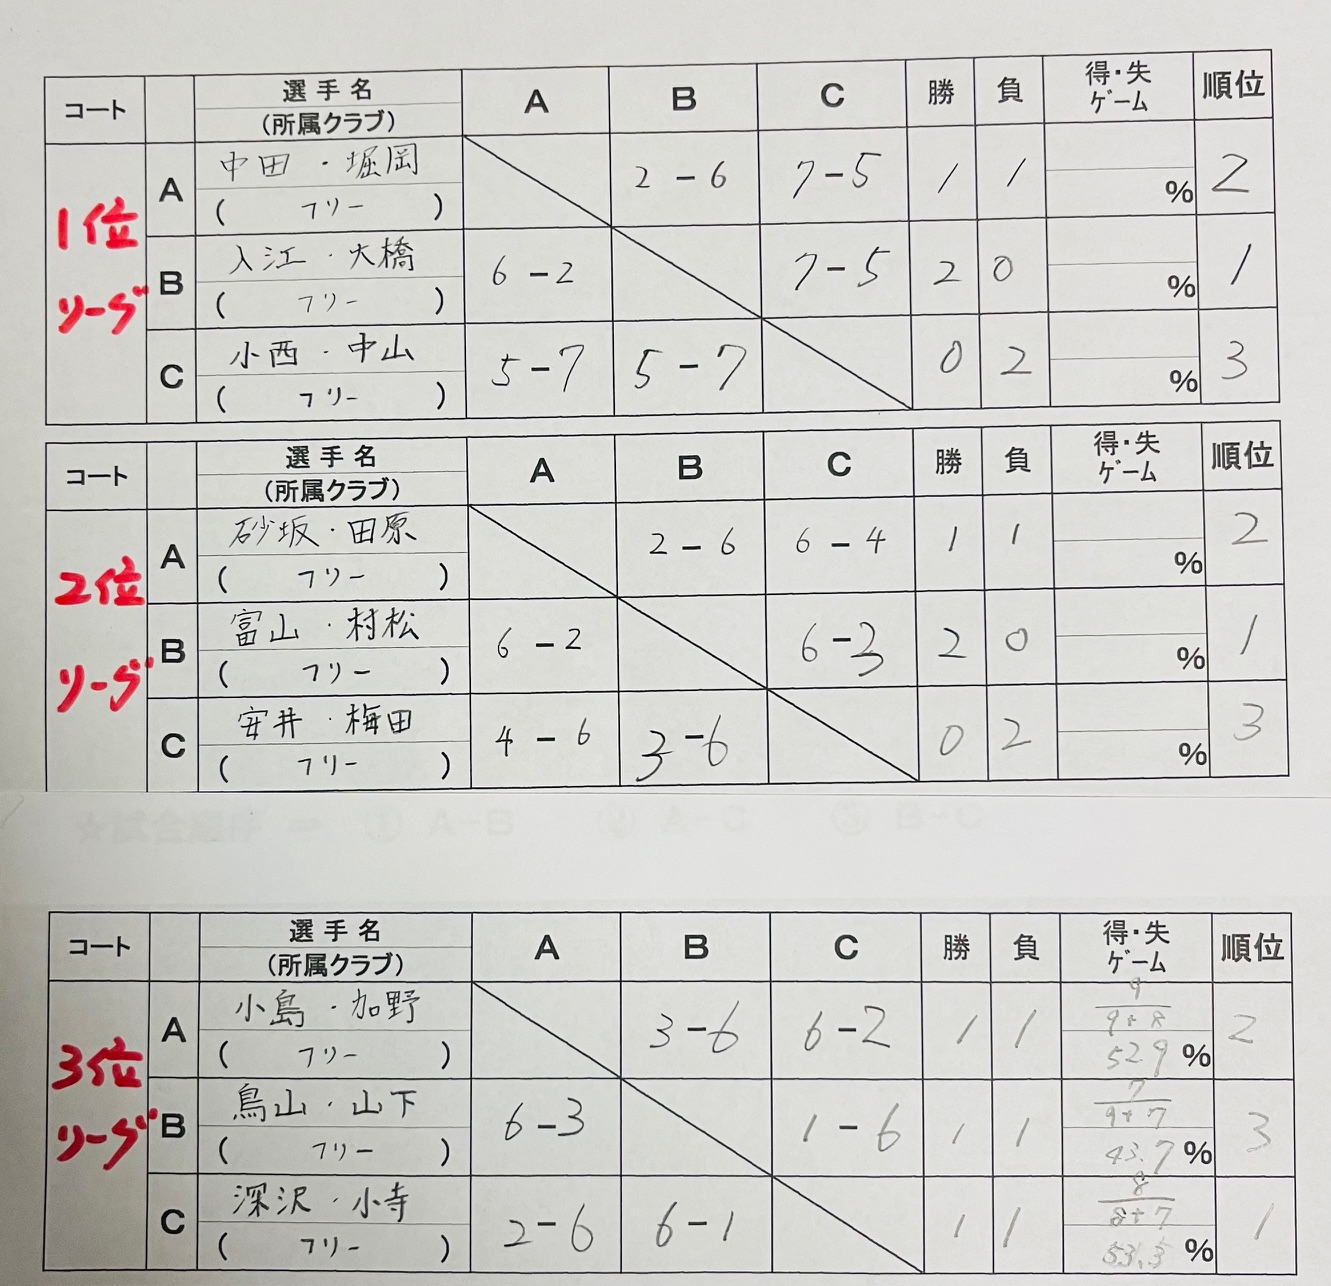 コート 選手名 (所属クラブ) A B C 勝 負 得・失ゲーム 順位
1位リーグ
A 中田・堀岡 2-6 7-5 1 1 % 2
(フリー)
B 入江・大橋 6-2 7-5 2 0 % 1
(フリー)
C 小西・中山 5-7 5-7 0 2 % 3
(フリー)
コート 選手名 (所属クラブ) A B C 勝 負 得・失ゲーム 順位
2位リーグ
A 砂坂・田原 2-6 6-4 1 1 % 2
(フリー)
B 富山・村松 6-2 6-3 2 0 % 1
(フリー)
C 安井・梅田 4-6 3-6 0 2 % 3
(フリー)
☆試合順序 ＝ ① A-B ② A-C ③ B-C
コート 選手名 (所属クラブ) A B C 勝 負 得・失ゲーム 順位
3位リーグ
A 小島・加野 3-6 6-2 1 1 9/9+8 52.9% 2
(フリー)
B 鳥山・山下 6-3 1-6 1 1 7/9+7 43.7% 3
(フリー)
C 深沢・小寺 2-6 6-1 1 1 8/8+7 53.3% 1
(フリー)